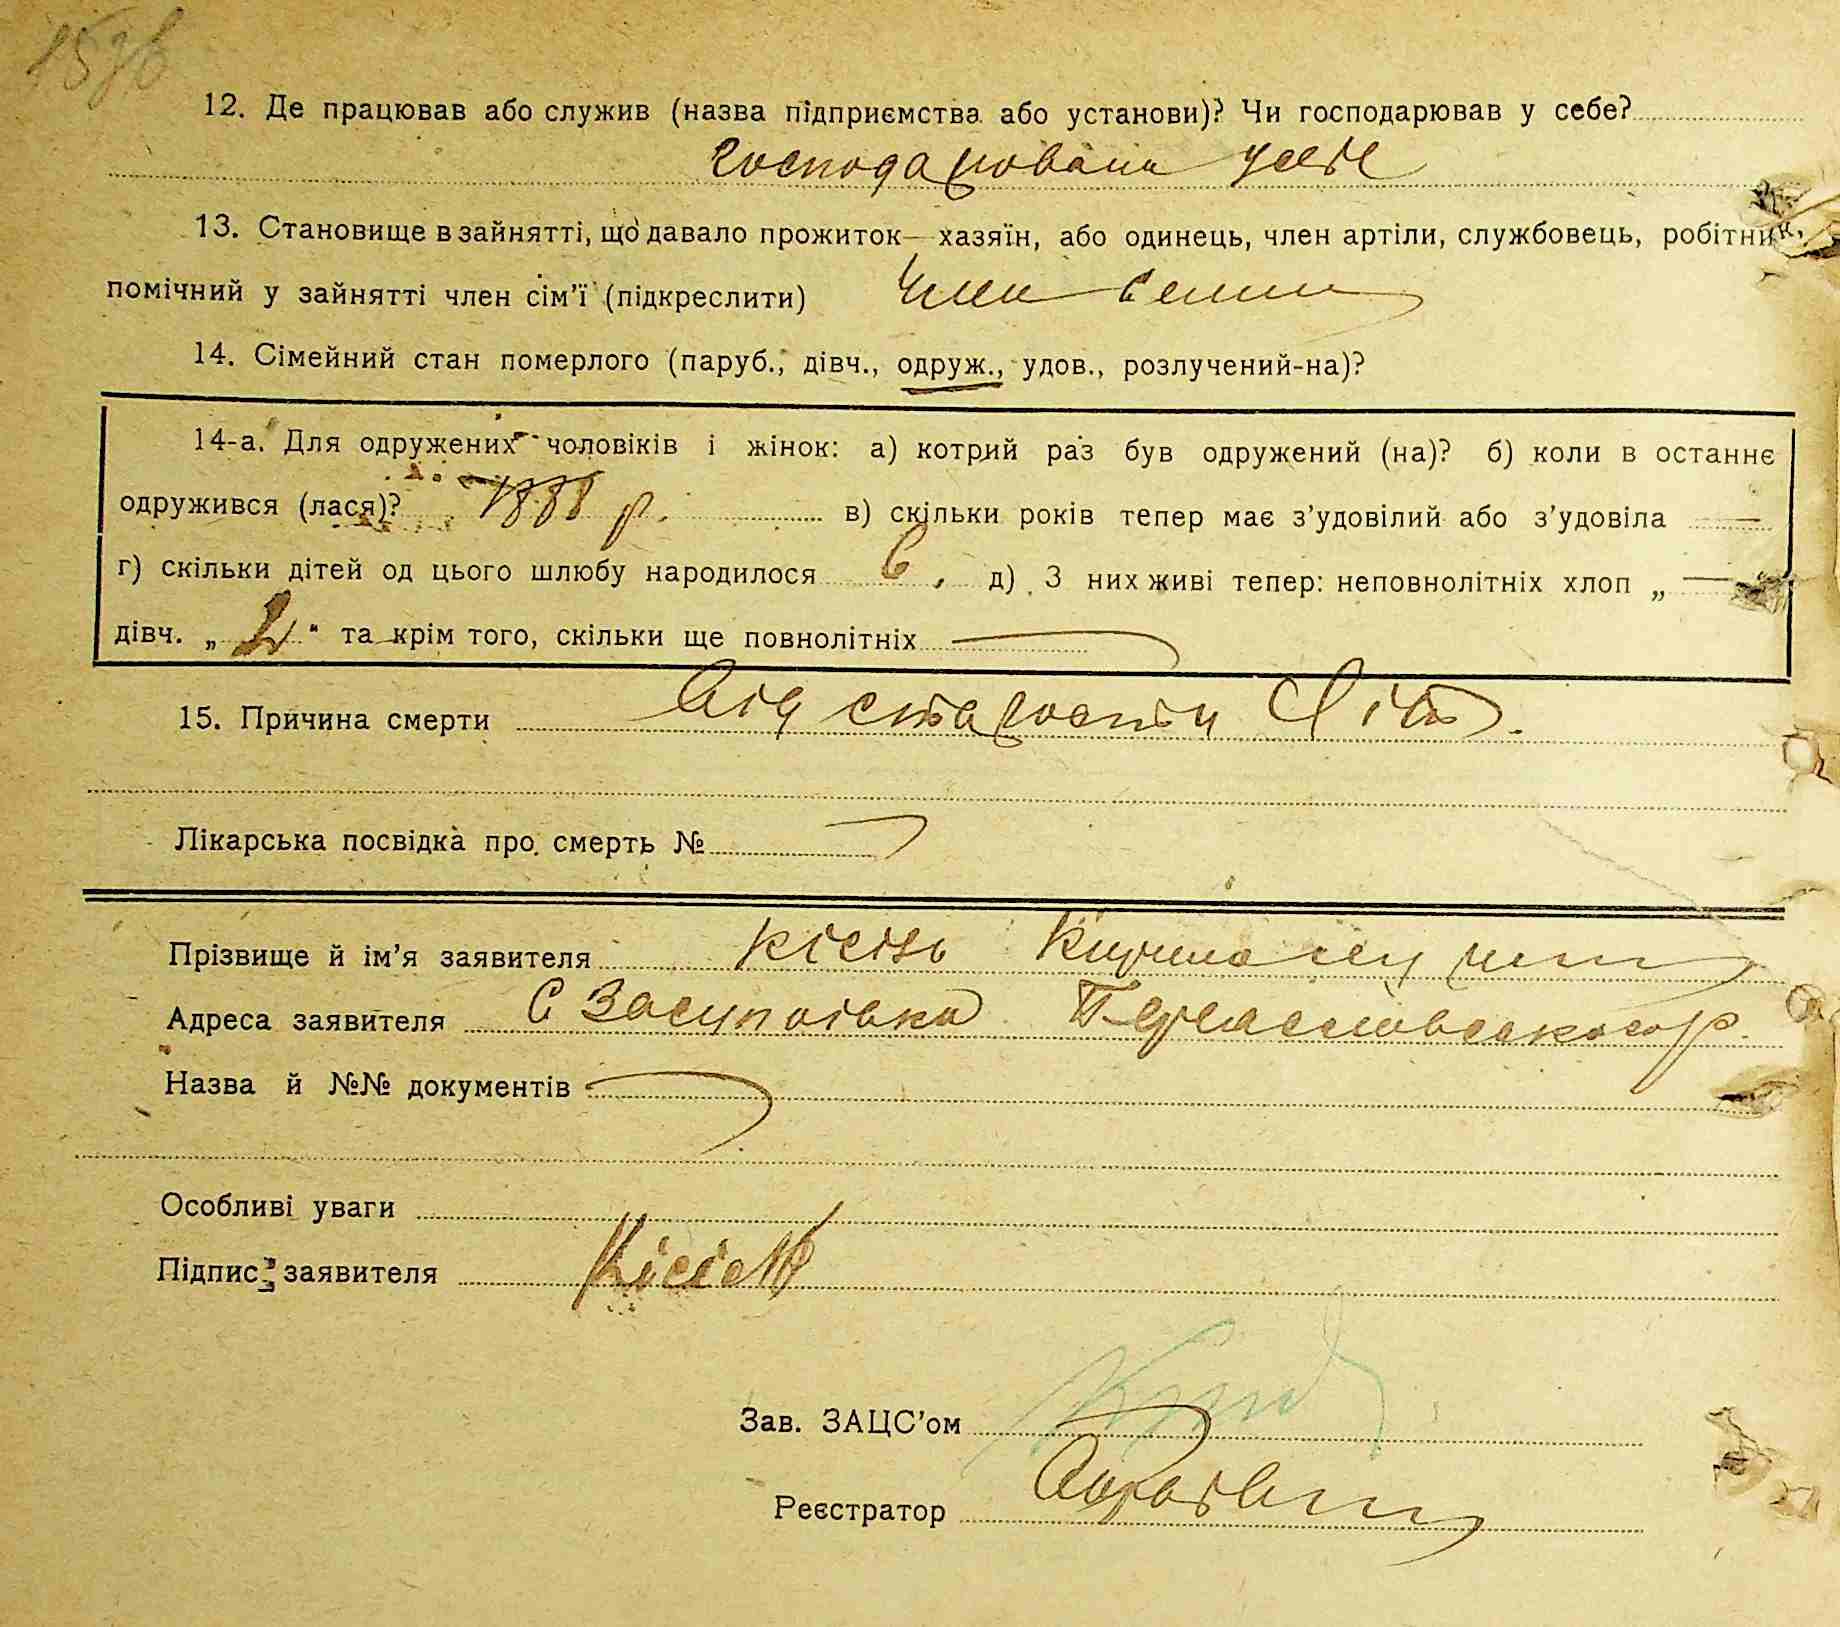 12. Де працював або служив (назва підприємства або установи)? Чи господарював у себе?
господарювала у себе
13. Становище в зайнятті, що давало прожиток — хазяїн, або одинець, член артіли, службовець, робітник,
помічний у зайнятті член сім'ї (підкреслити) Член семии
14. Сімейний стан померлого (паруб., дівч., одруж., удов., розлучений-на)?
14-а. Для одружених чоловіків і жінок: а) котрий раз був одружений (на)? б) коли в останнє
одружився (лася)? 1888 р. в) скільки років тепер має з'удовілий або з'удовіла —
г) скільки дітей од цього шлюбу народилося 6, д) З них живі тепер: неповнолітніх хлоп „ —
дівч. „ 2 " та крім того, скільки ще повнолітніх —
15. Причина смерти Від старости літ.
Лікарська посвідка про смерть № —
Прізвище й ім'я заявителя Кісіль Кирило
Адреса заявителя С Засупоївка
Назва й №№ документів —
Особливі уваги
Підпис заявителя Кісіль
Зав. ЗАЦС'ом
Реєстратор